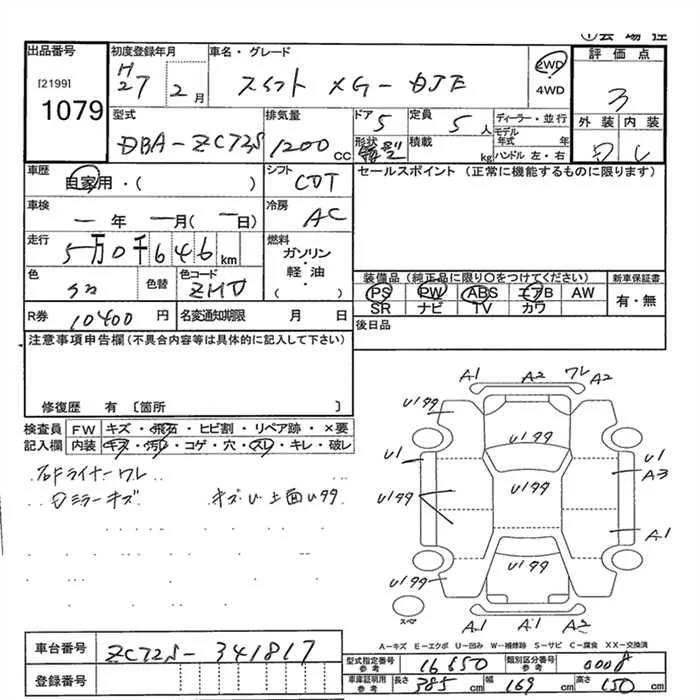 ①会場控
出品番号
[2199]
1079
初度登録年月
H27 2月
車名・グレード
スイフト XG-DJE
2WD
4WD
評価点
3
外装 内装
D
型式
DBA-ZC72S
排気量
1200 CC
ドア 5
形状
定員 5人
積載 kg
ディーラー・並行
モデル年式 年
ハンドル 左・右
車歴
自家用・( )
シフト
CDT
セールスポイント (正常に機能するものに限ります)
車検
ー年 ー月(ー日)
冷房
AC
走行
5万0千646km
燃料
ガソリン・軽油・( )
色
色替
色コード
ZMU
装備品(純正品に限り○をつけてください)
新車保証書
PS PW ABS エアB AW
SR ナビ TV カワ
有・無
R券 10400円
名変通知期限 月 日
後日品
注意事項申告欄(不具合内容等は具体的に記入して下さい)
修復歴 有 〔箇所 〕
検査員記入欄
FW キズ・飛石・ヒビ割・リペア跡・×要
内装 キズ・汚レ・コゲ・穴・スレ・キレ・破レ
右Fライナーワレ
ミラーキズ キズU 上面U99
A1 A2 ワレ A2
U199 U199
U1 U199 U199 A3
A1
U199 U199
A1 A1 A2
スペア
A-キズ E-エクボ U-凹み W-補修跡 S-サビ C-腐食 XX-交換済
車台番号
ZC72S-341817
登録番号
型式指定番号 参考 16650
類別区分番号 参考 0008
車庫証明用 参考
長さ 385cm 幅 169cm 高さ 150cm